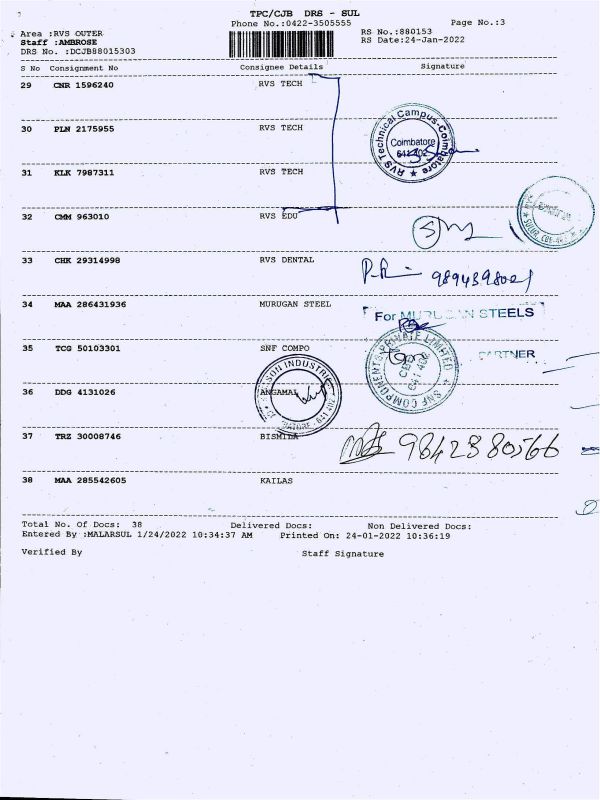 TPC/CJB DRS - SUL
Phone No.:0422-3505555
Page No.:3
Area :RVS OUTER
RS No.:880153
Staff :AMBROSE
RS Date:24-Jan-2022
DRS No. :DCJB88015303
S No Consignment No Consignee Details Signature
29 CNR 1596240 RVS TECH
30 PLN 2175955 RVS TECH
RVS Technical Campus-Coimbatore
Coimbatore
641 402
31 KLK 7987311 RVS TECH
32 CMM 963010 RVS EDU
33 CHK 29314998 RVS DENTAL
34 MAA 286431936 MURUGAN STEEL
For MURUGAN STEELS
PARTNER
35 TCG 50103301 SNF COMPO
SNF COMPONENTS PRIVATE LIMITED
CBE
641 402
36 DDG 4131026 ANGAMAL
37 TRZ 30008746 BISMILA
9842380566
38 MAA 285542605 KAILAS
Total No. Of Docs: 38 Delivered Docs: Non Delivered Docs:
Entered By :MALARSUL 1/24/2022 10:34:37 AM Printed On: 24-01-2022 10:36:19
Verified By Staff Signature